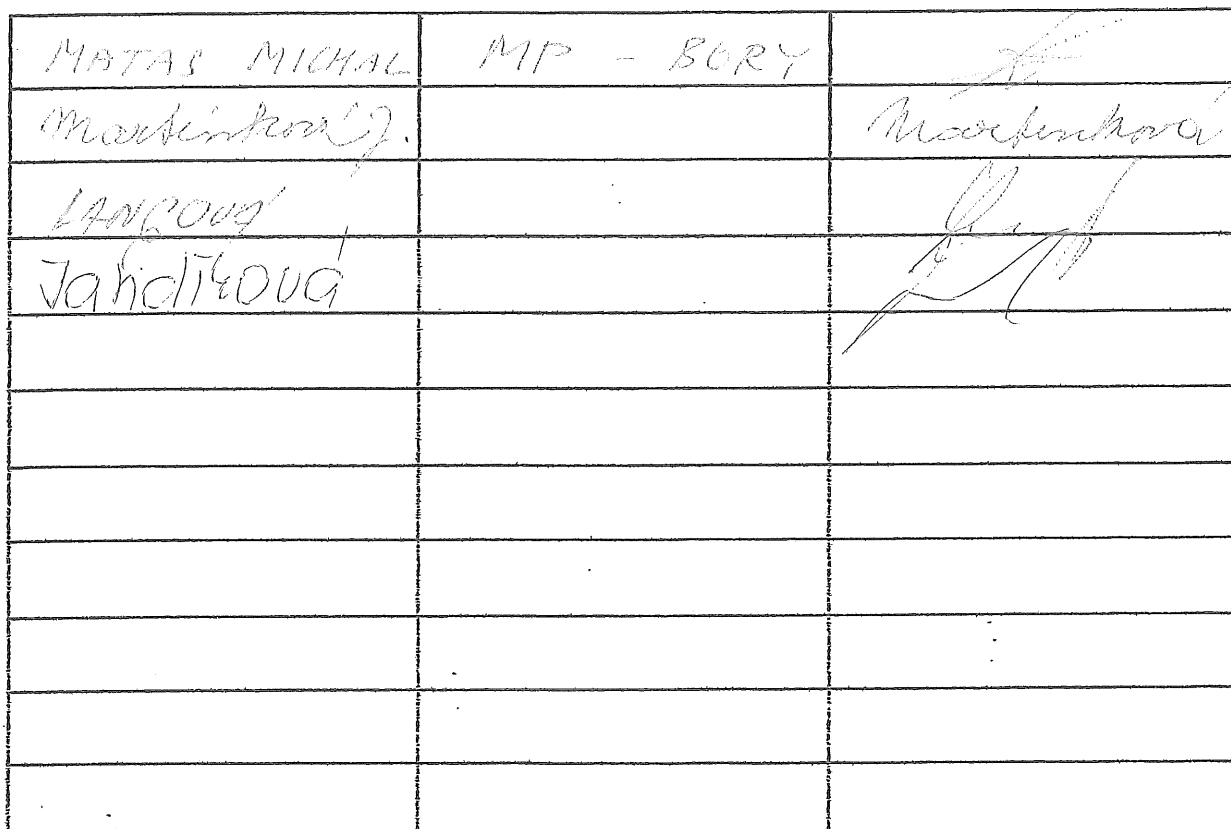 MATAS MICHAL MP - BORY
Martinková J. Martinková
LANGOVÁ
Jandíková